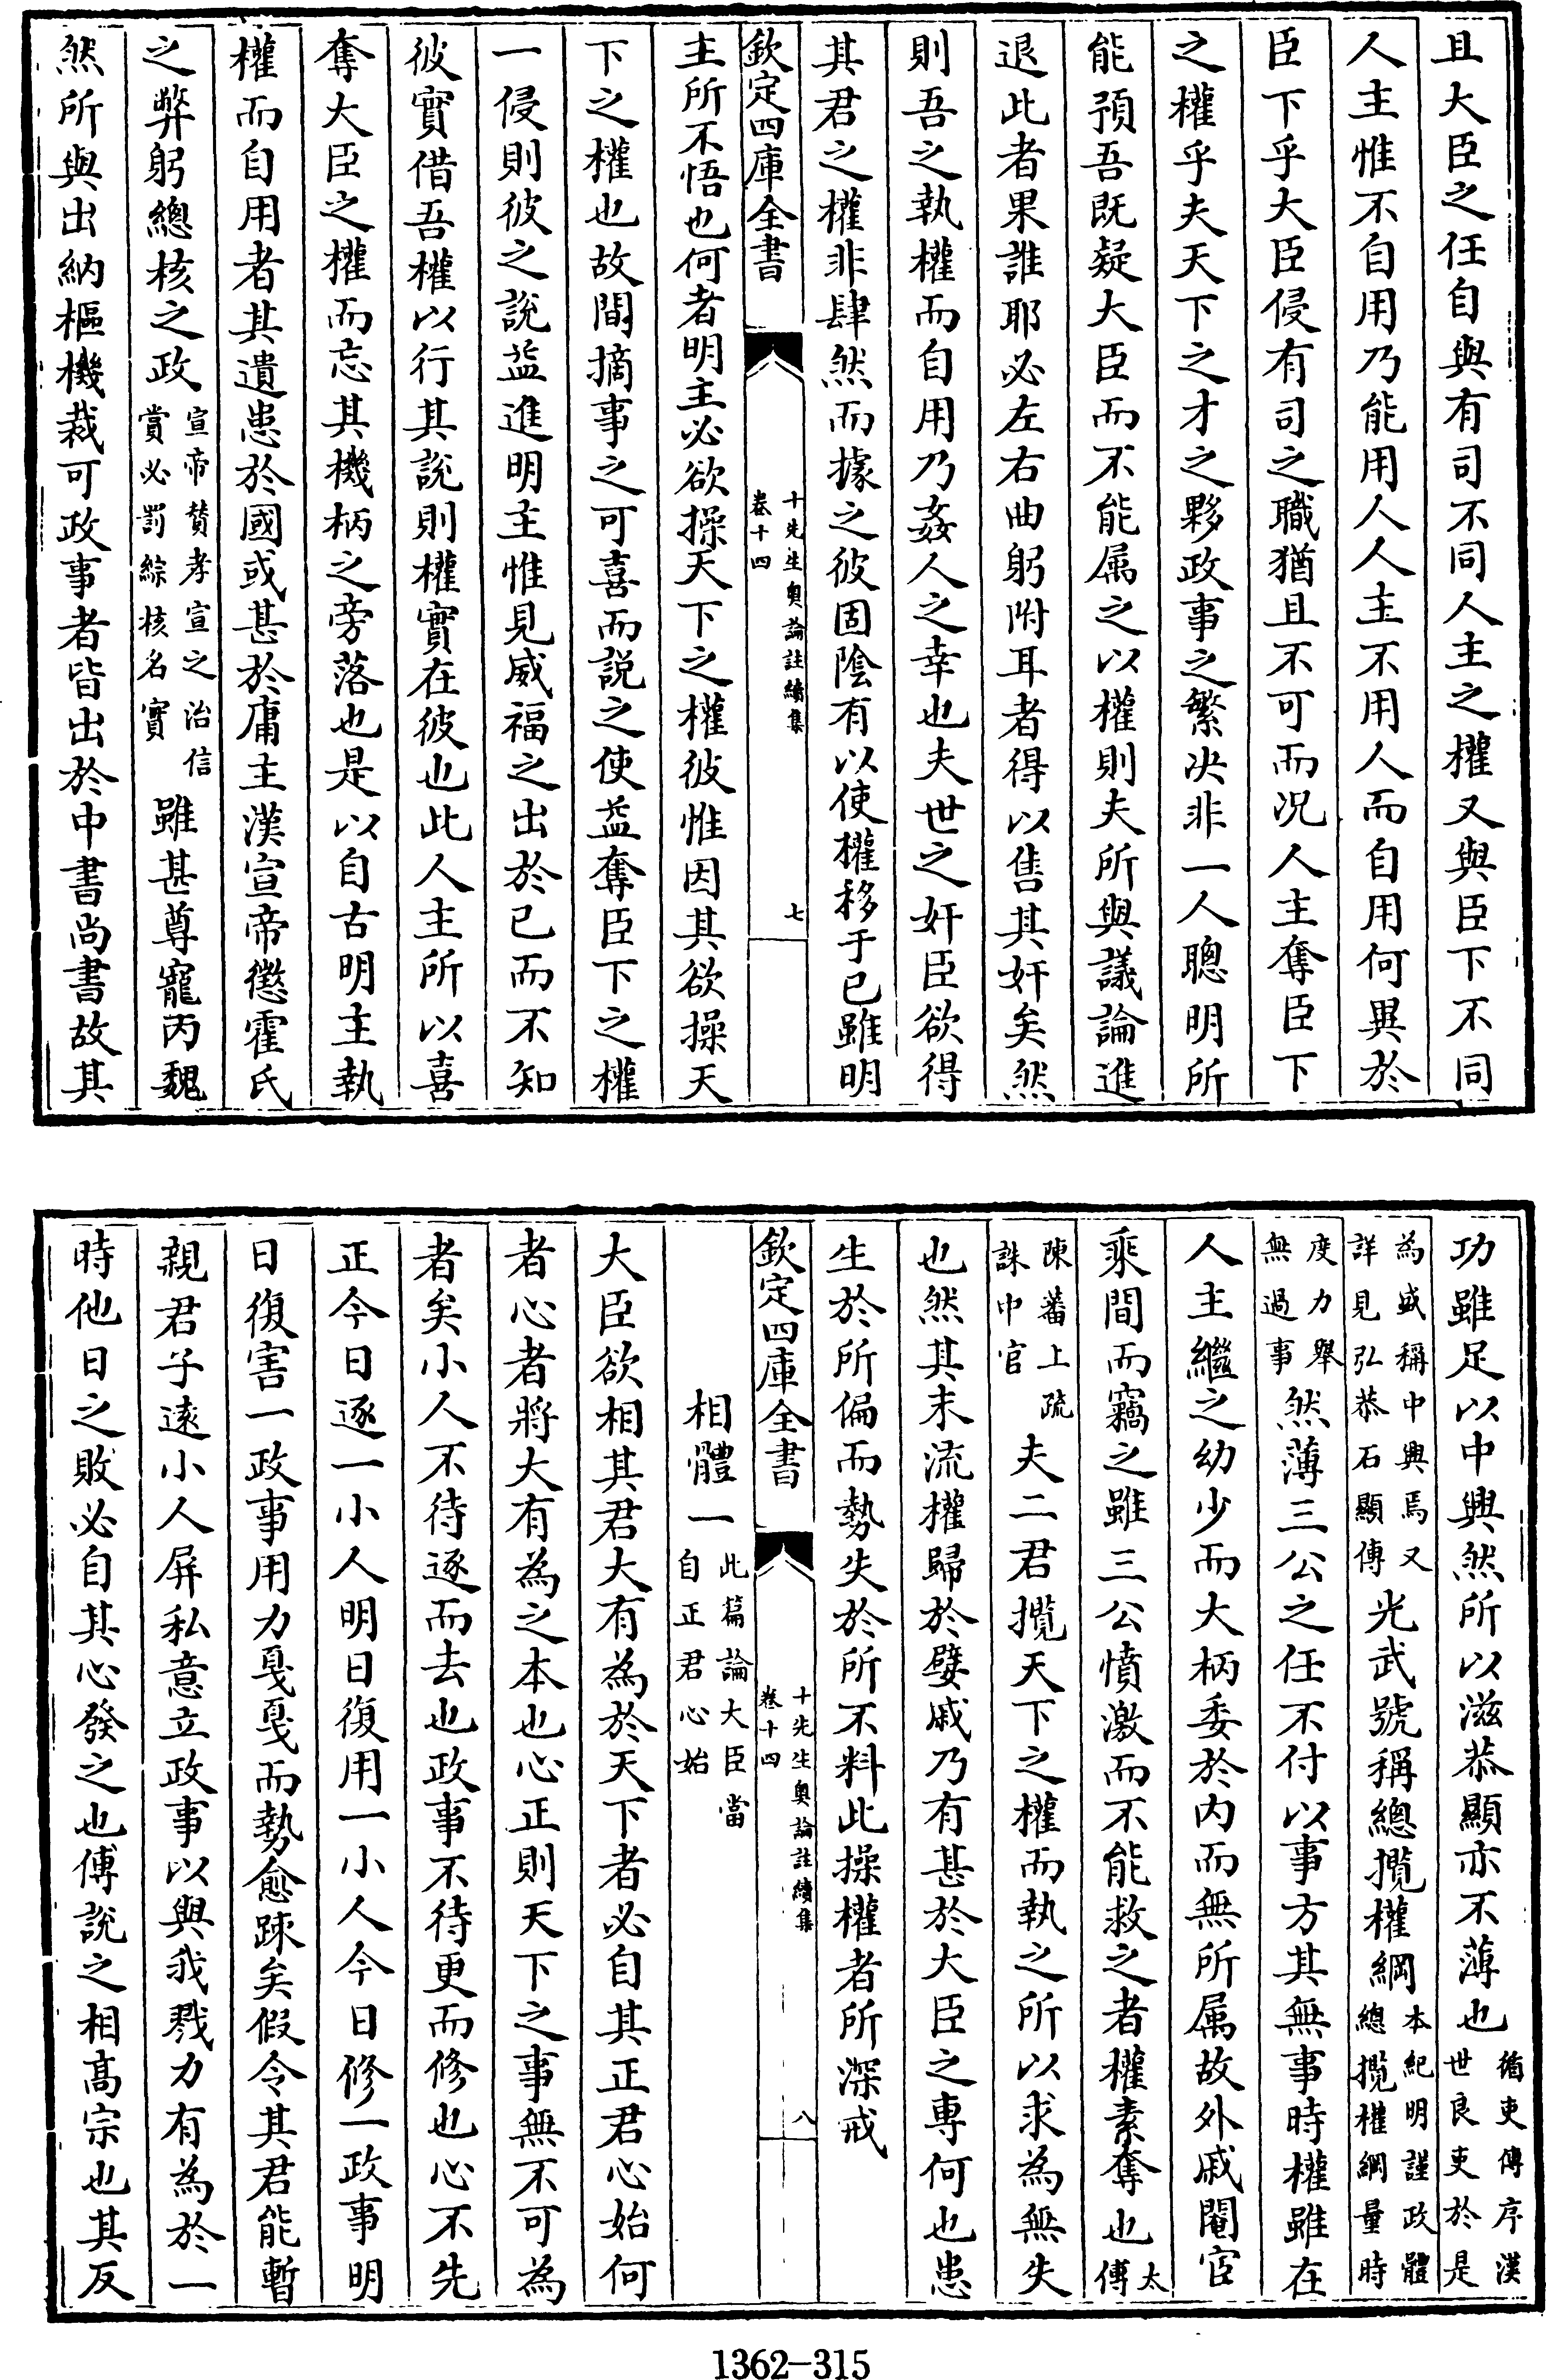 且大臣之任自與有司不同人主之權又與臣下不同
人主惟不自用乃能用人人主不用人而自用何異於
臣下乎大臣侵有司之職猶且不可而况人主奪臣下
之權乎夫天下之才之夥政事之繁决非一人聰明所
能預吾既疑大臣而不能属之以權則夫所與議論進
退此者果誰耶必左右曲躬附耳者得以售其奸矣然
則吾之執權而自用乃姦人之幸也夫世之奸臣欲得
其君之權非肆然而據之彼固陰有以使權移于已雖明
欽定四庫全書
十先生奥論註續集
卷十四
七
主所不悟也何者明主必欲操天下之權彼惟因其欲操天
下之權也故間摘事之可喜而説之使益奪臣下之權
一侵則彼之說益進明主惟見威福之出於已而不知
彼實借吾權以行其說則權實在彼也此人主所以喜
奪大臣之權而忘其機柄之旁落也是以自古明主執
權而自用者其遺患於國或甚於庸主漢宣帝懲霍氏
之弊躬總核之政
宣帝賛孝宣之治信
賞必罰綜核名實
雖甚尊寵丙魏
然所與出納樞機裁可政事者皆出於中書尚書故其
功雖足以中興然所以滋恭顯亦不薄也
循吏傳序漢
世良吏於是
為盛稱中興焉又
詳見弘恭石顯傳
光武號稱總攬權綱
本紀明謹政體
總攬權綱量時
度力舉
無過事
然薄三公之任不付以事方其無事時權雖在
人主繼之幼少而大柄委於内而無所属故外戚閹宦
乘間而竊之雖三公憤激而不能救之者權素奪也
太
傅
陳蕃上疏
誅中官
夫二君攬天下之權而執之所以求為無失
也然其末流權歸於嬖戚乃有甚於大臣之專何也患
生於所偏而勢失於所不料此操權者所深戒
欽定四庫全書
十先生奥論註續集
卷十四
八
相體一
此篇論大臣當
自正君心始
大臣欲相其君大有為於天下者必自其正君心始何
者心者將大有為之本也心正則天下之事無不可為
者矣小人不待逐而去也政事不待更而修也心不先
正今日逐一小人明日復用一小人今日修一政事明
日復害一政事用力戛戛而勢愈踈矣假令其君能暫
親君子逺小人屏私意立政事以與我戮力有為於一
時他日之敗必自其心發之也傅說之相高宗也其反
1362-315